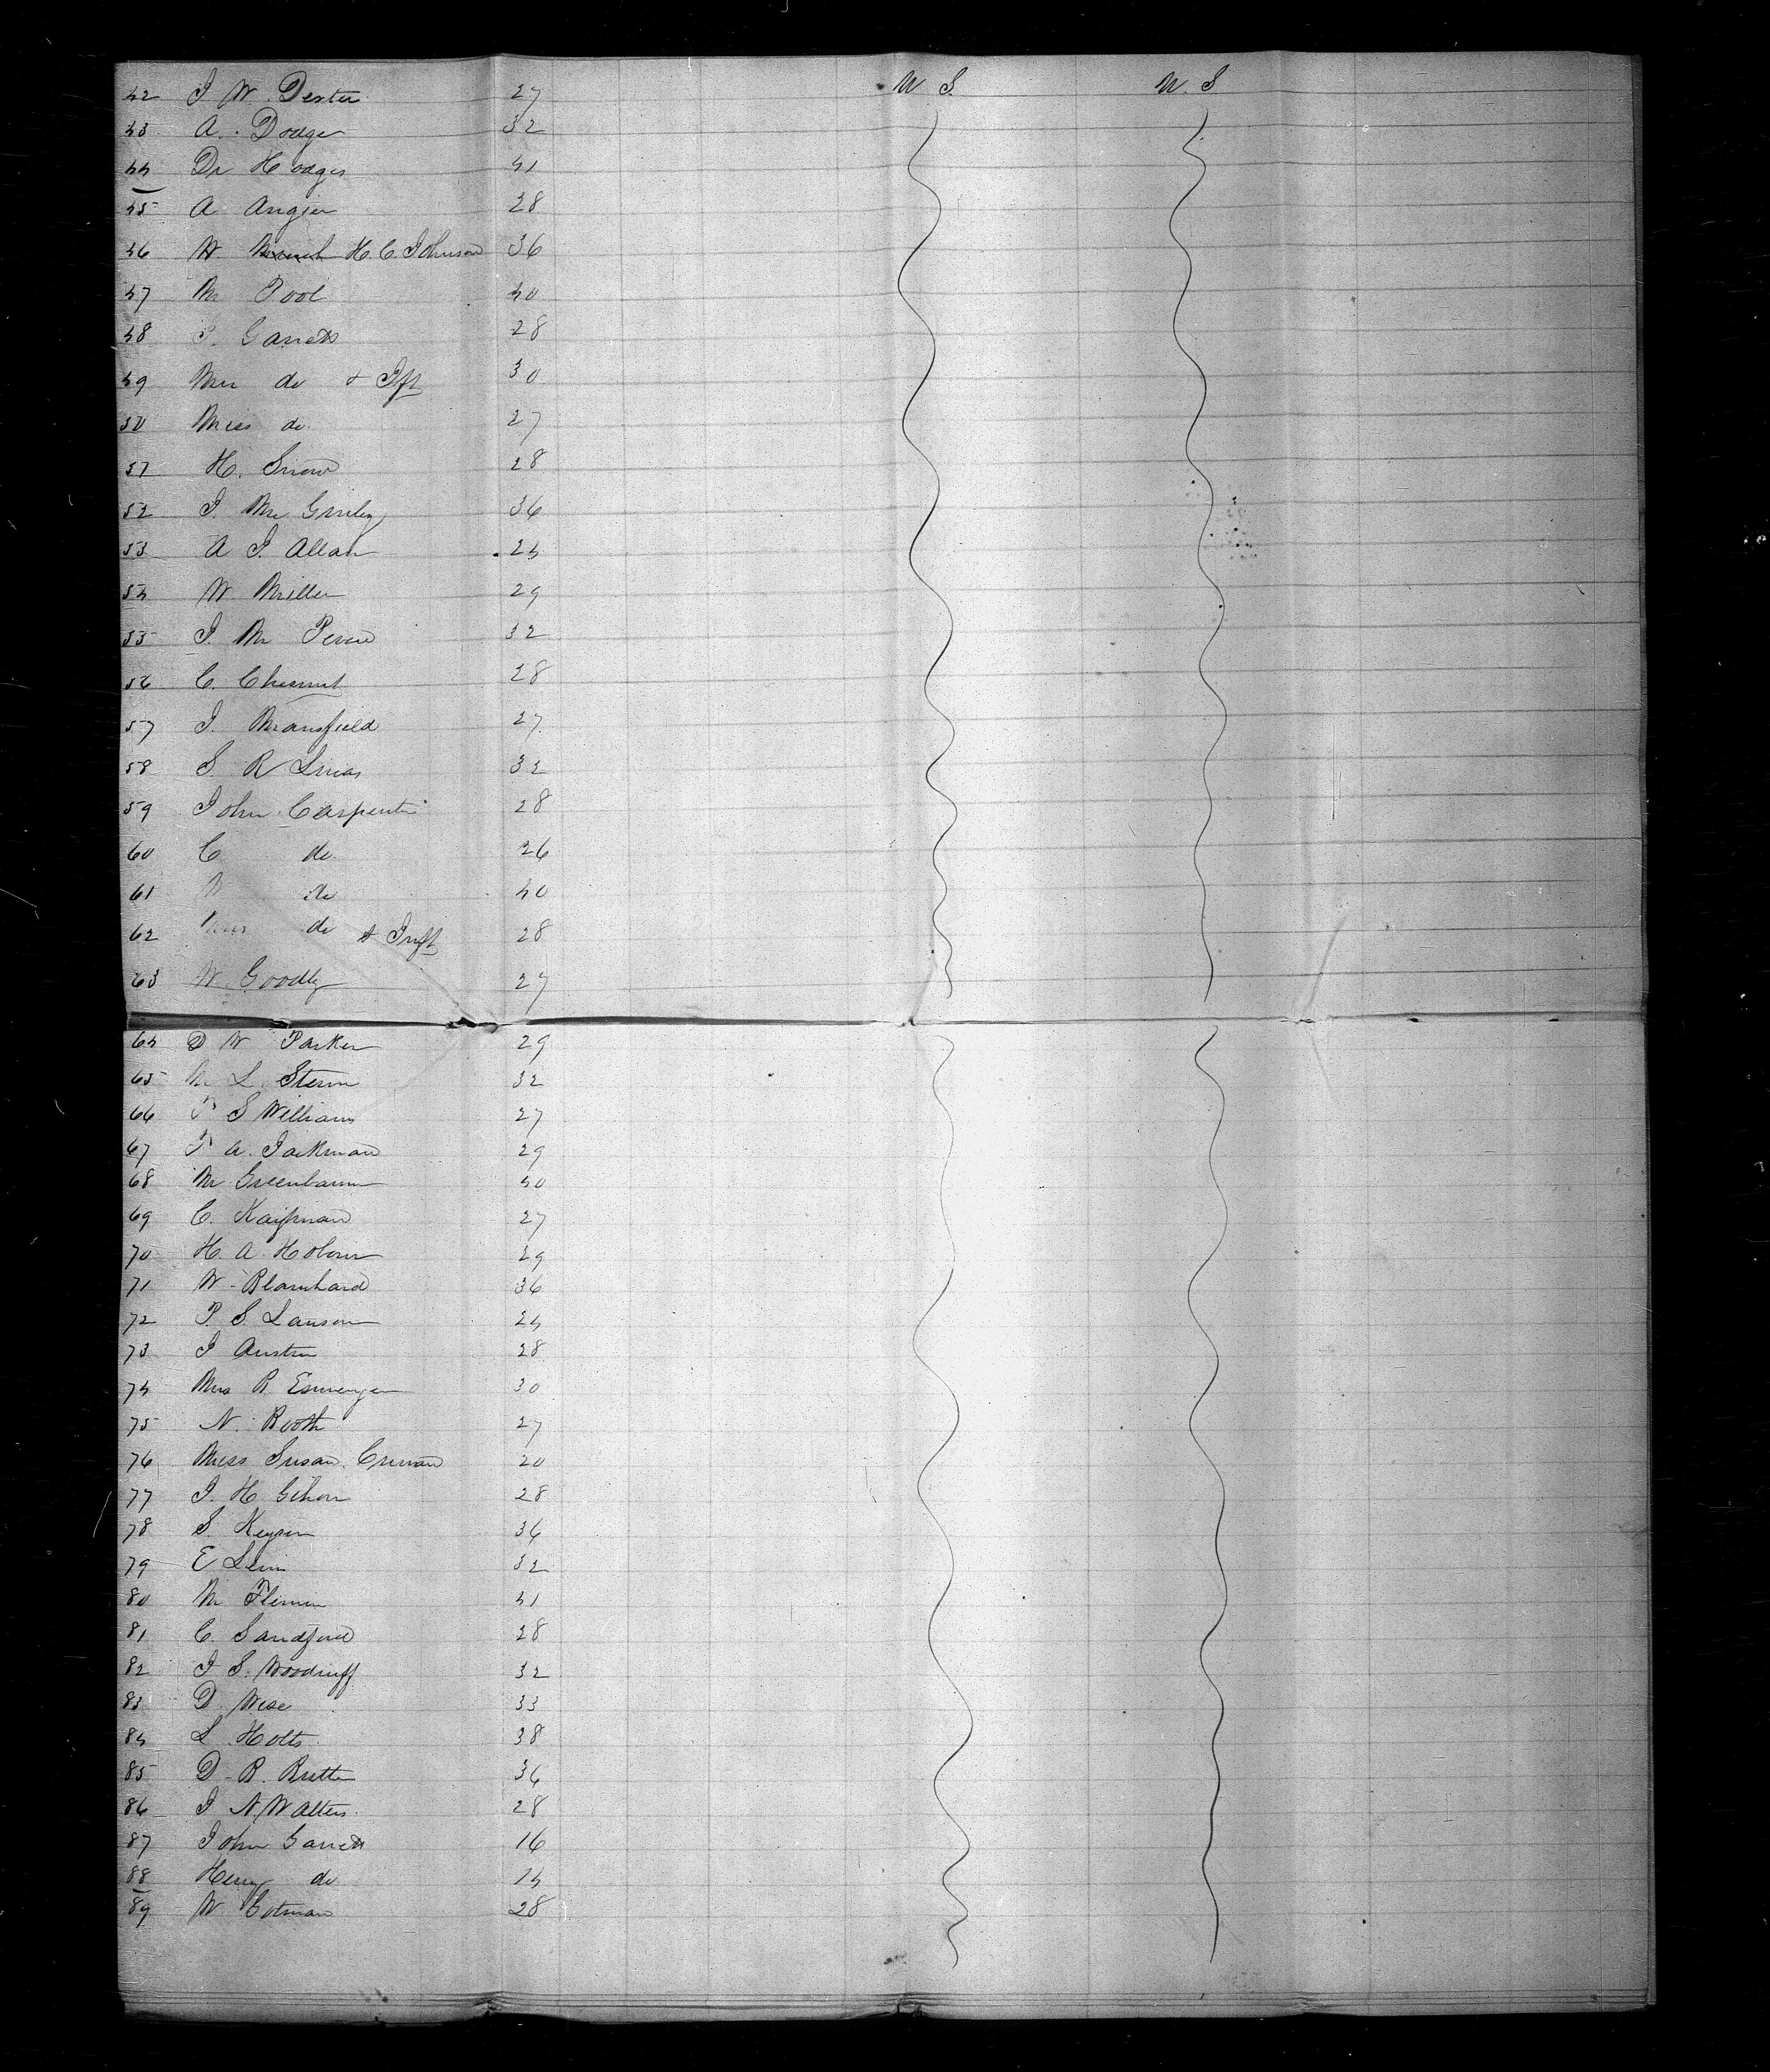 42 J W. Dexter 27 U S. U. S
43 A. Dodge 32
44 Dr Hodges 41
45 A Angier 28
46 W H. C. Johnson 36
47 Mr Pool 40
48 P. Garrett 28
49 Mrs do & Ift 30
50 Miss do 27
51 H. Snow 28
52 J. Mc 36
53 A J. Allan 24
54 W Miller 29
55 J. M 32
56 C. Chesnut 28
57 J. Mansfield 27
58 S. R Lucas 32
59 John Carpenter 28
60 C do 26
61 W do 40
62 Mrs do & Inft 28
63 W Goodly 27
64 D W Parker 29
65 M L. Stern 32
66 T S Williams 27
67 T A. Jackman 29
68 M Greenbaum 40
69 C. Kaufman 27
70 H. A 29
71 W. Blanchard 36
72 P. S. Lawson 24
73 J Austin 28
74 Mrs R 30
75 N. Booth 27
76 Miss Susan 20
77 J. H Gihon 28
78 S. Keyser 36
79 E Levi 32
80 M 41
81 C. Sandford 28
82 J S. Woodruff 32
83 D. Wise 33
84 L Holts 38
85 D. R. 36
86 J N. Walters 28
87 John Garrett 16
88 Henry do 14
89 W 28